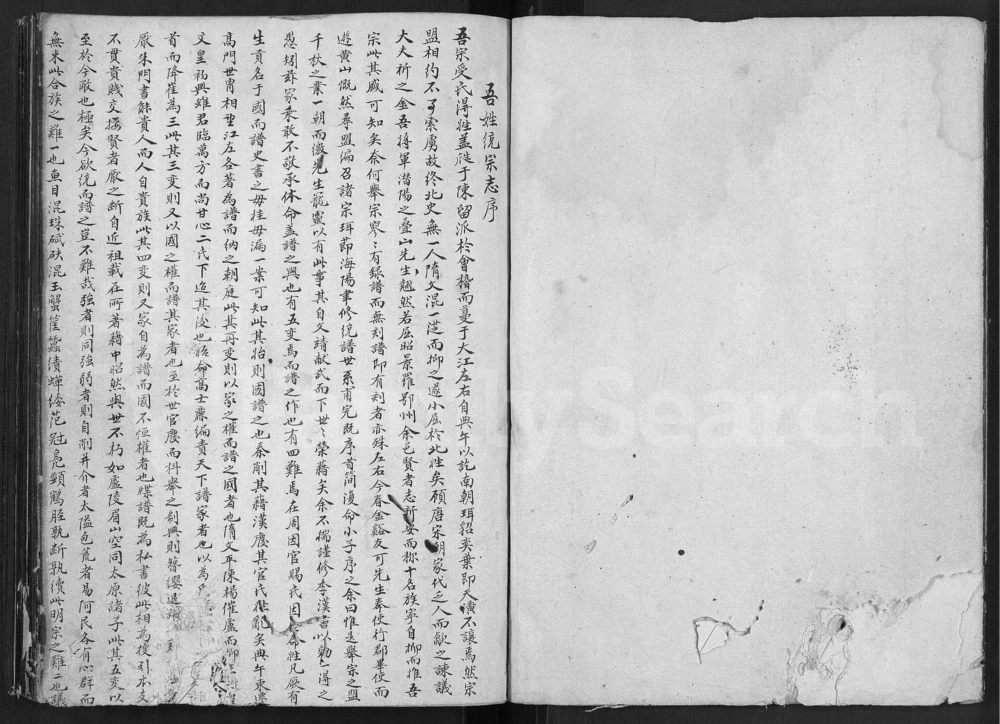 吾姓統宗志序
吾宗受氏得姓蓋從于陳留派於會稽而蔓于大江左右自典午以訖南朝珥貂奕葉即天潢不讓焉然宗
盟相約不了索虜故終北史無一人隋文混一從而抑之遂小屈於北姓矣顧唐宋朝家代乏人而歙之諫議
大夫祈之金吾將軍潛陽之疊山先生翹然若屈昭景羅鄂州余邑賢者志新安而称十名族寧自抑而推吾
宗此其盛可知矣奈何舉宗寥〻有録譜而無刻譜即有刻者亦殊左右今春金谿友可先生奉使行郡畢使而
遊黄山慨然尋盟徧召諸宗珥節海陽聿修統譜世系甫完既序首简復命小子序之余曰惟是舉宗之盟
千秋之業一朝而徼先生寵靈以有此事其自文靖献武而下世〻榮藉矣余不揣謹修李漢言以勒
愚矧茲家乘敢不敬承休命蓋譜之興也有五変焉而譜之作也有四難焉在周因官賜氏因命姓凡厥有
生貢名于國而譜史書之毋挂毋漏一業可知此其始則國譜之也秦削其藉漢慶其官氏亂矣典午東遷
高門世胄相望江左各著為譜而纳之朝庭此其再变則以家之權而譜之國者也隋文平陳楊催盧而抑
文皇初興雖君臨萬方而尚甘心二氏下迄其後也始命高士廉編責天下譜家者也以為
首而降崔為三此其三变則又以國之權而譜其家者也至於世官廢而科舉之制興則簪纓遺
厥朱門書餘貴人而人自貴族此其四变則又家自為譜而國不恒權者也媟譜既為私書彼此相為援引本支
不貫貴賤交搆賢者厭之斷自近祖載在所著藉中昭然與世不朽如盧陵眉山空同太原諸子此其五变以
至於今敢也極矣今欲統而譜之豈不難哉強者則同強弱者則自削井介者太隘包荒者易阿民各有心群而
無來此合族之難一也魚目混珠碔砆混玉蟹筐蠶績蟬緌范冠鳧頸鶴脛孰断孰續此明宗之難二也議